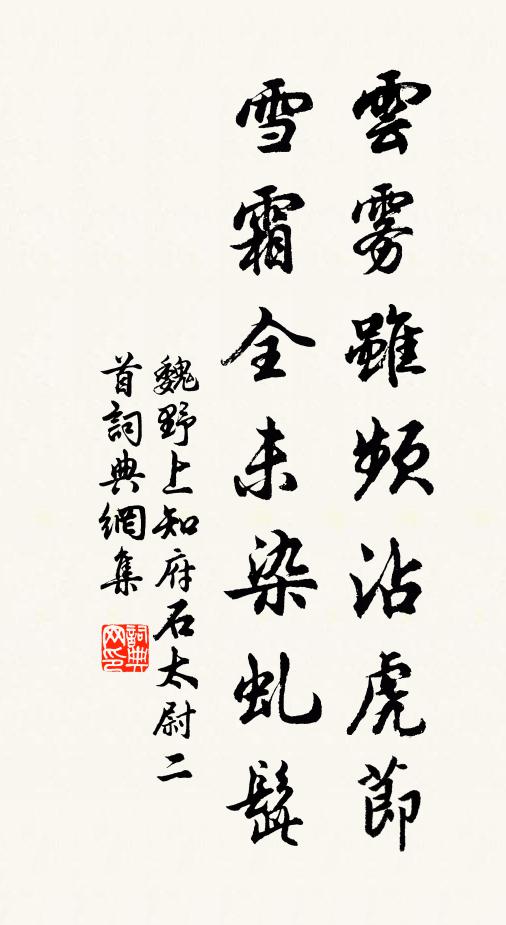 雲雾雖頻沾虎節
雪霜全未染虬髭
魏野上知府石太尉二
首詞典網集
詞典網印